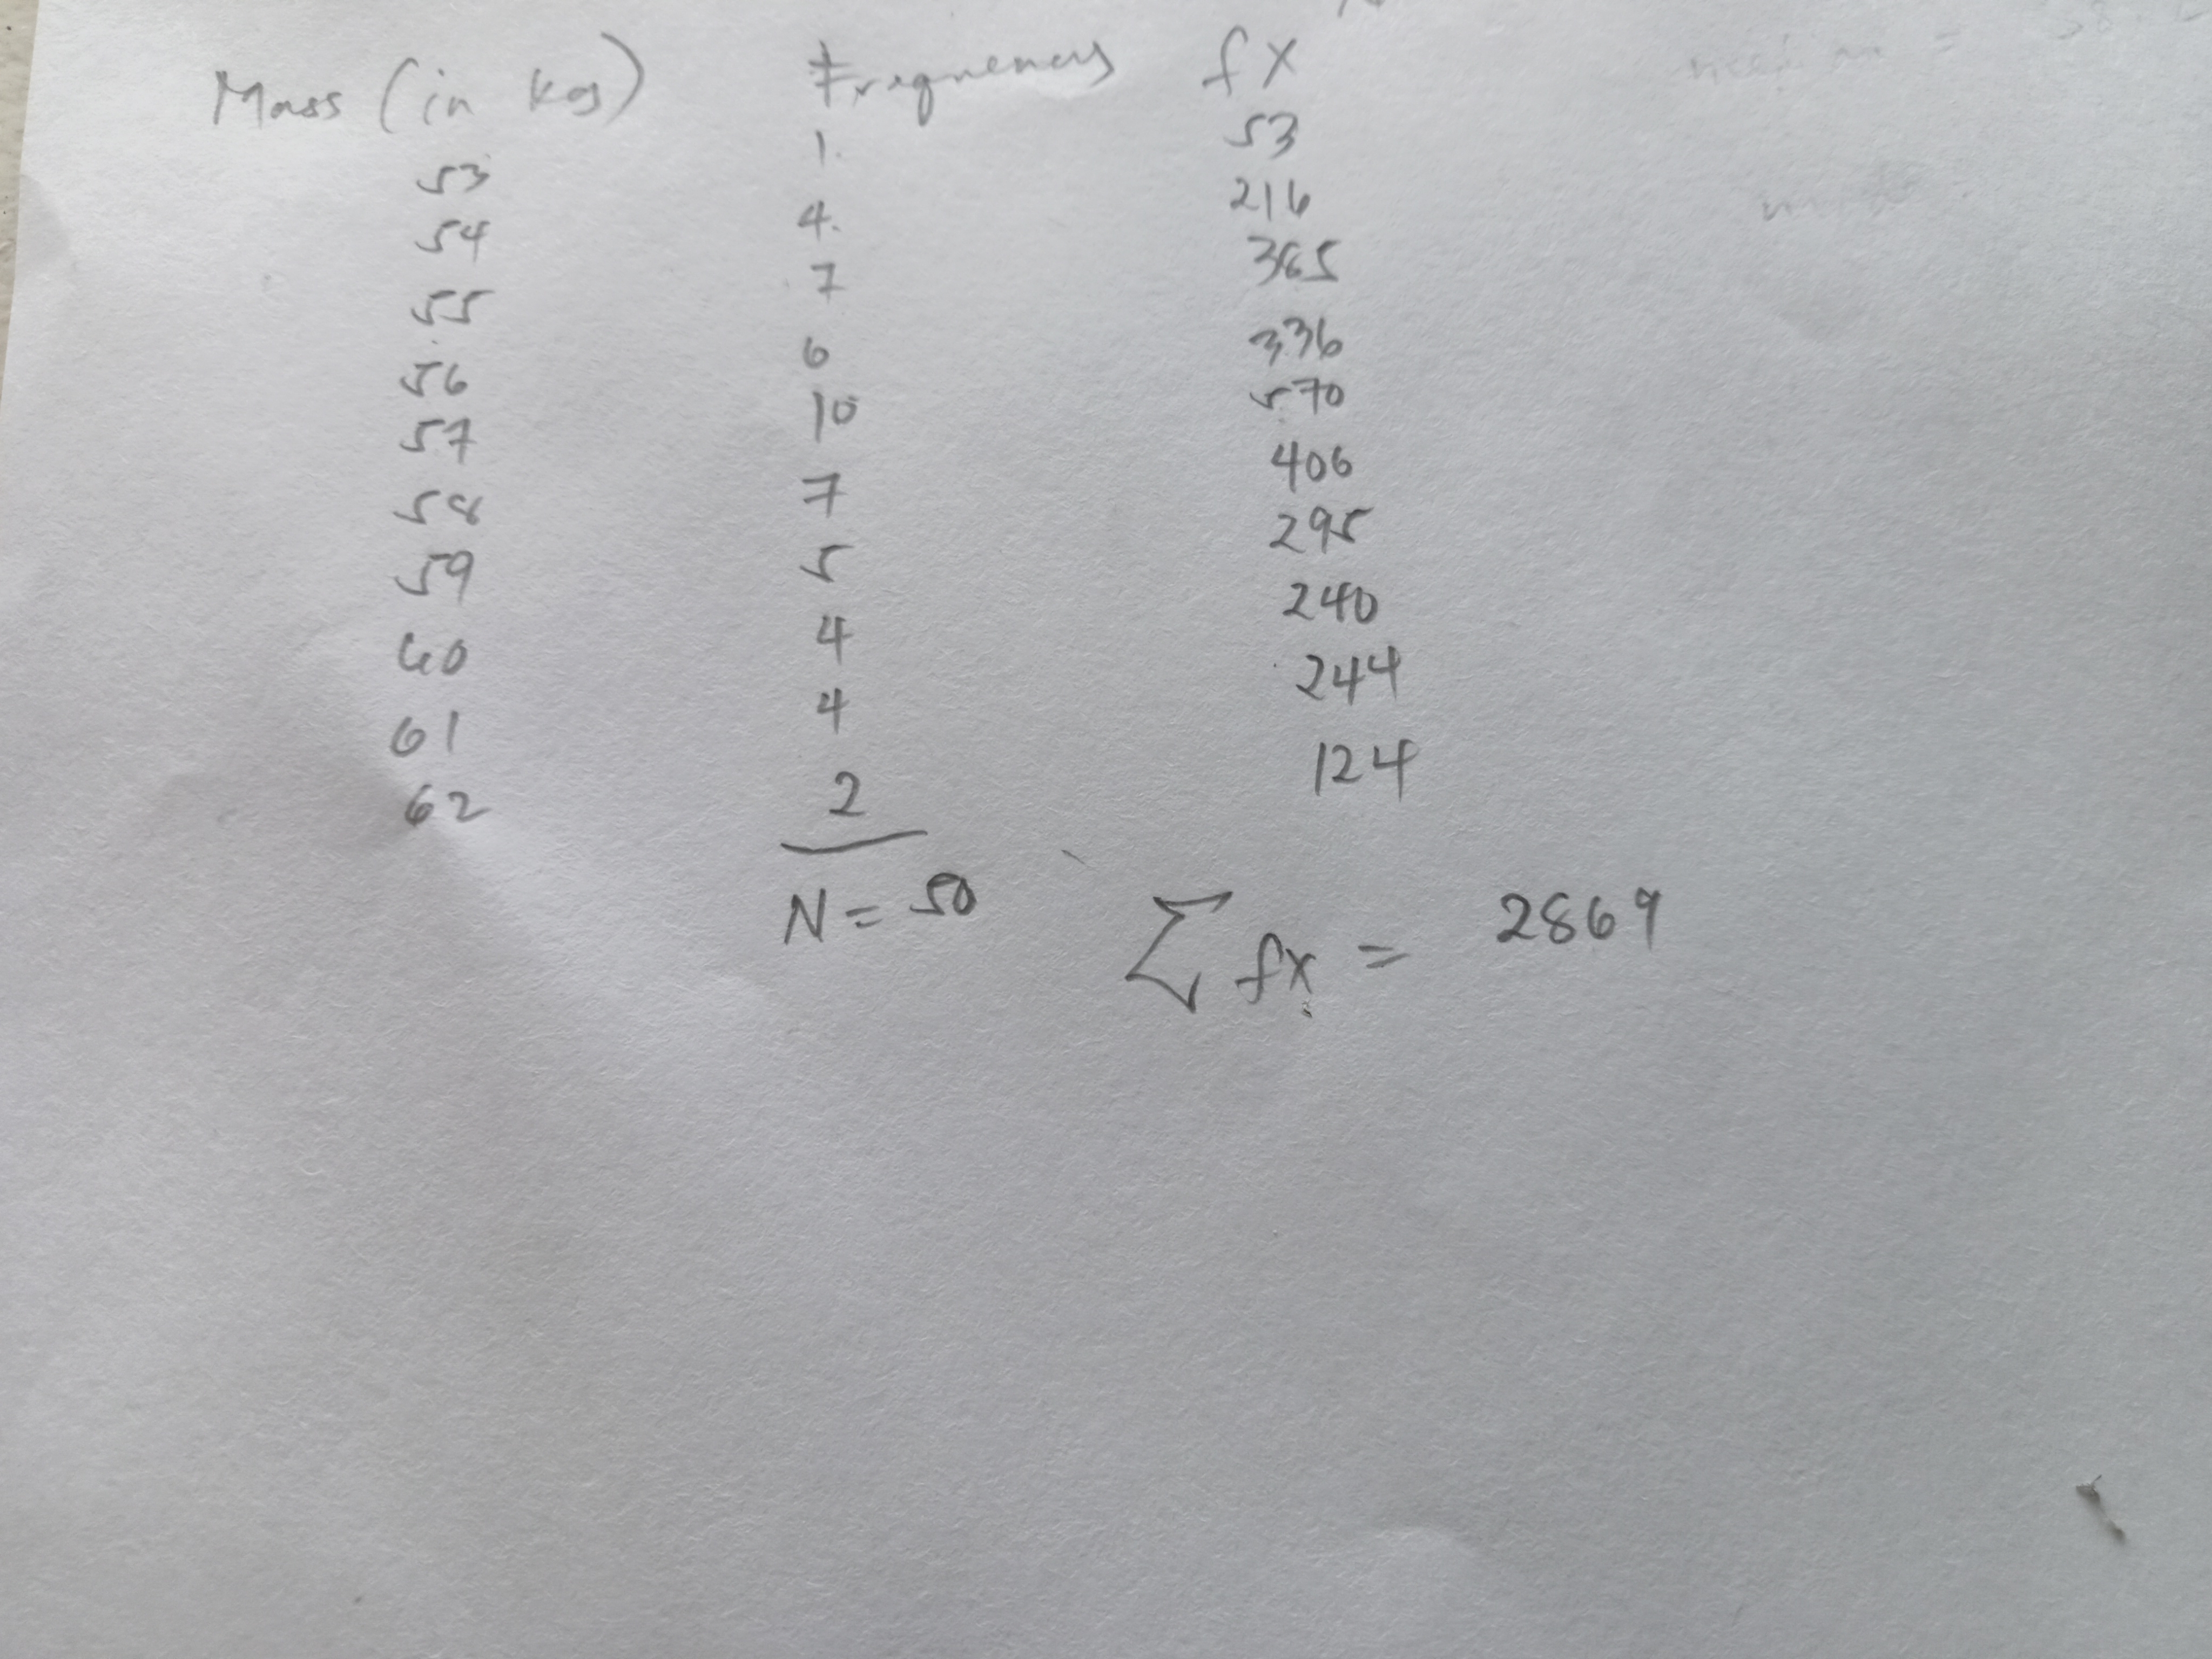 Mass (in kg) Frequency fx
53 1. 53
54 4. 216
55 7 385
56 6 336
57 10 570
58 7 406
59 5 295
60 4 240
61 4 244
62 2 124
N = 50 ∑ fx = 2869